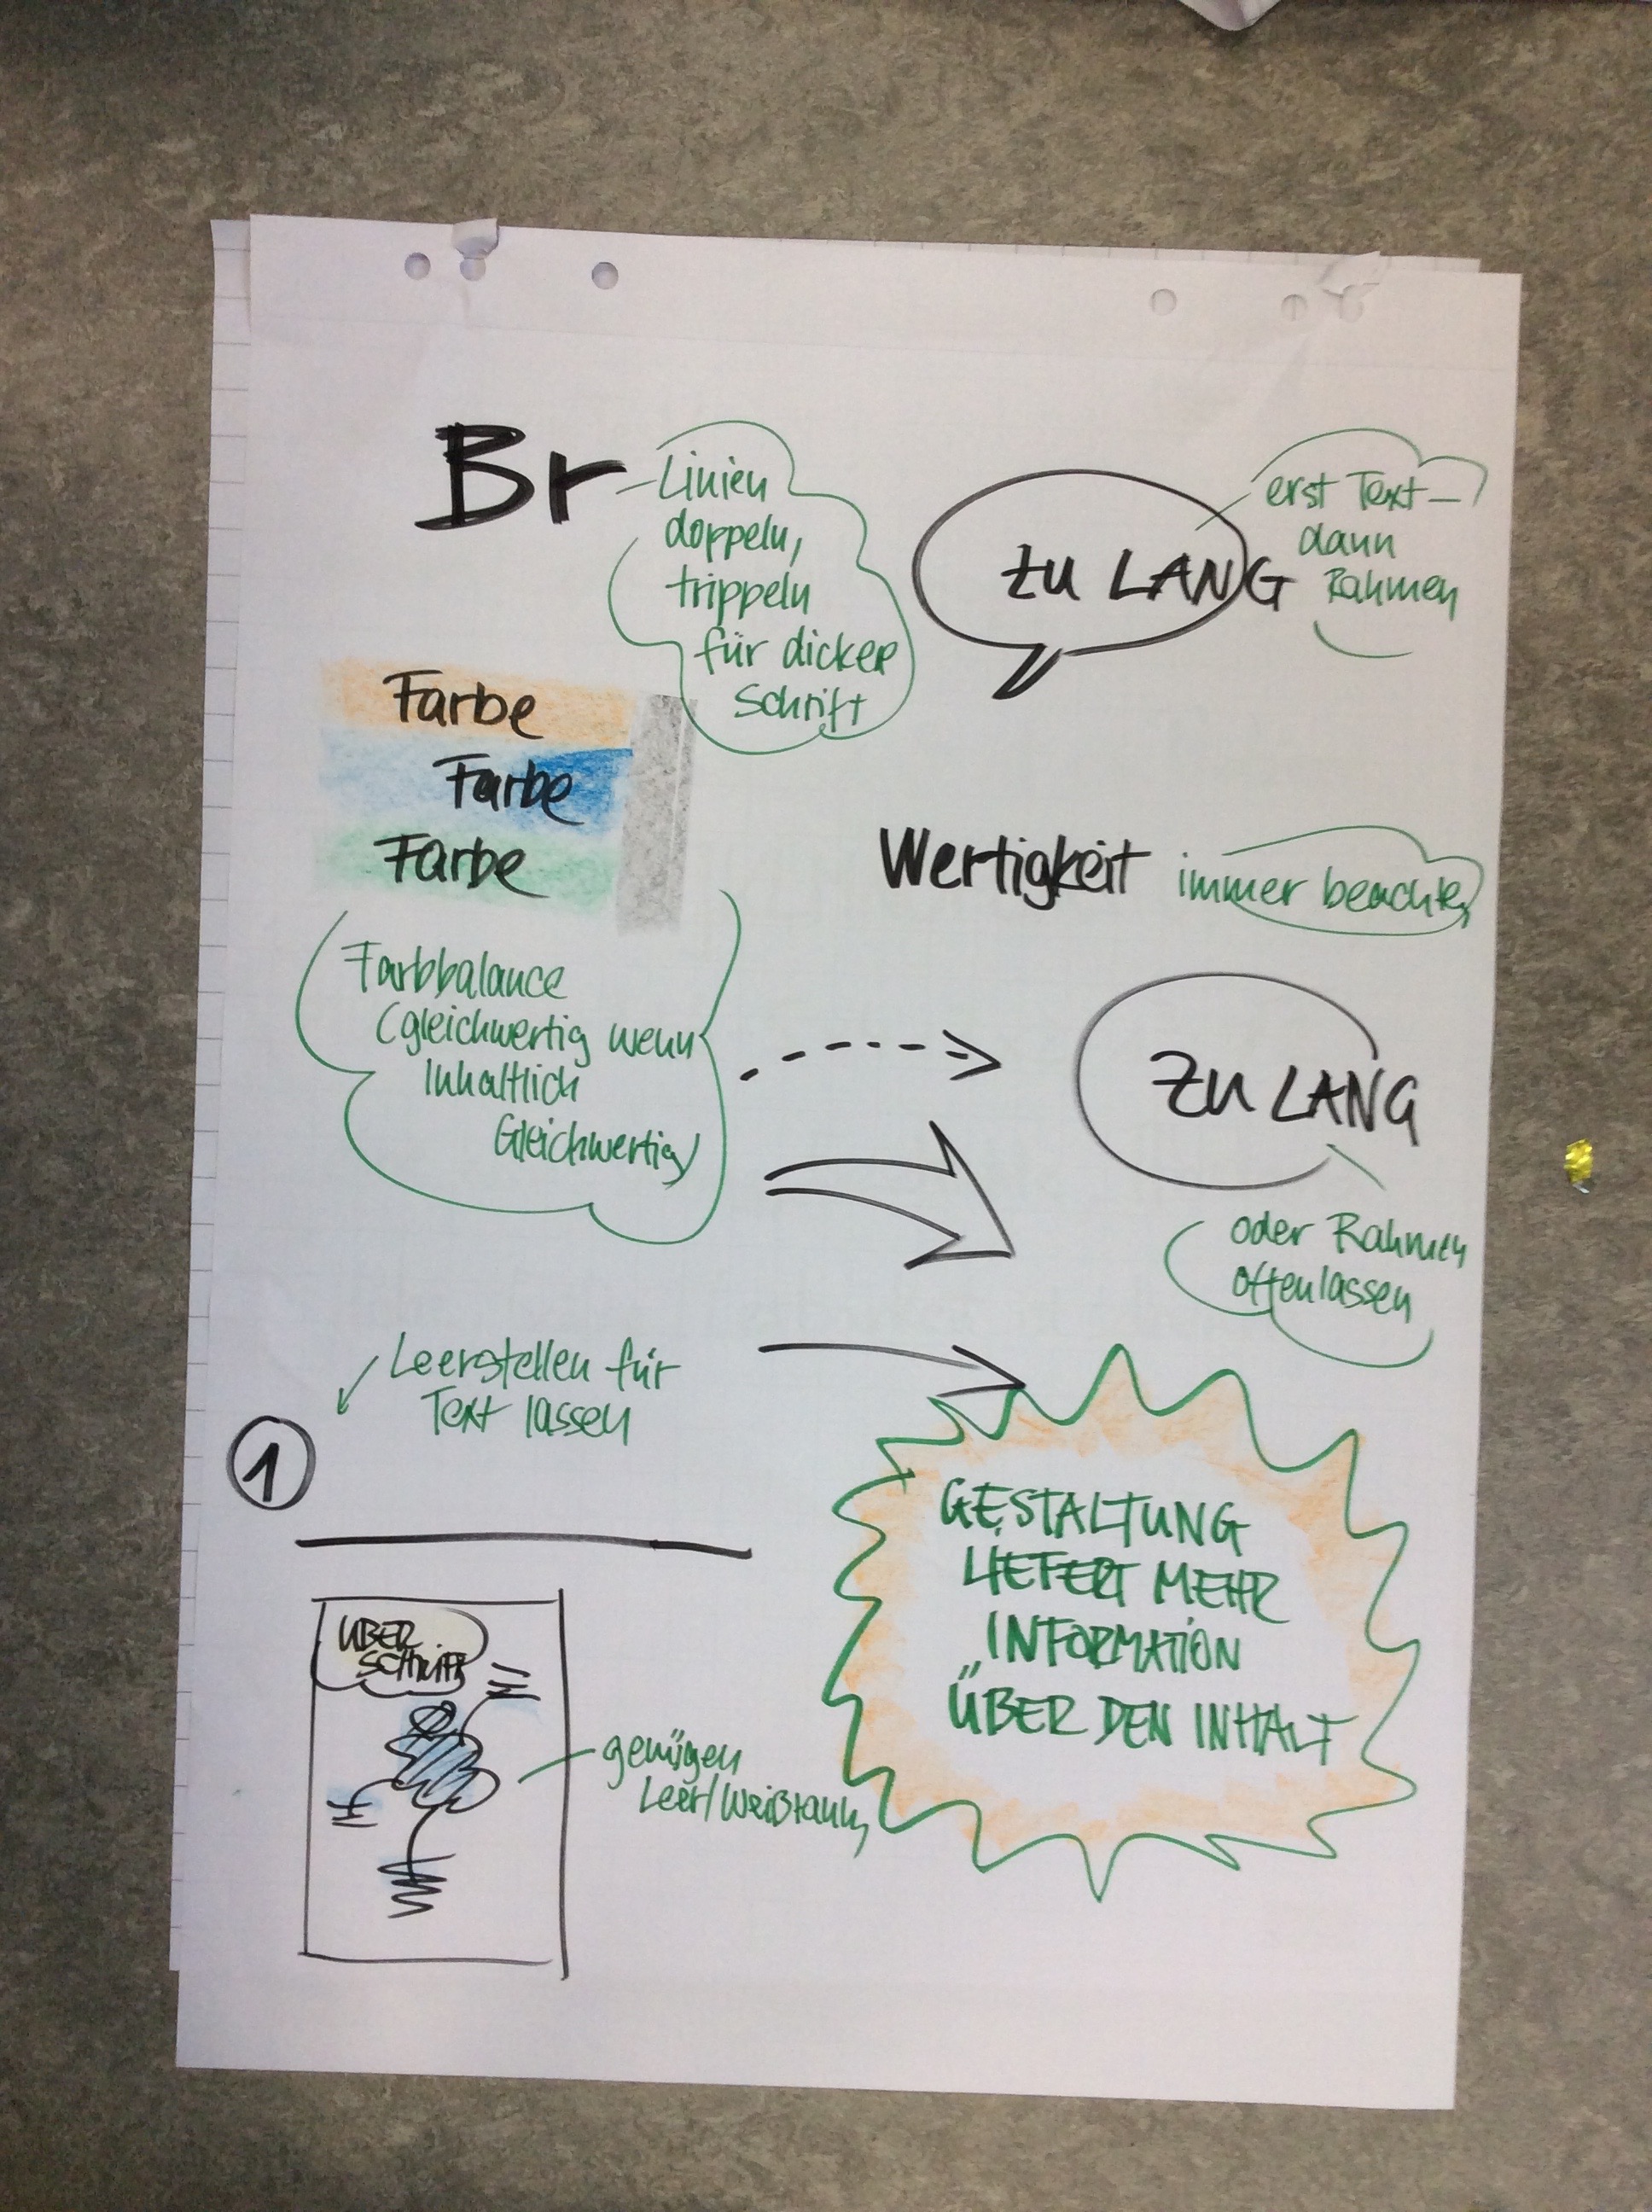 Br
Linien
doppeln,
trippeln
für dicker
Schrift
ZU LANG
erst Text –
dann
Rahmen
Farbe
Farbe
Farbe
Wertigkeit immer beachten
Farbbalance
(gleichwertig wenn
Inhaltlich
Gleichwertig)
ZU LANG
oder Rahmen
offenlassen
Leerstellen für
Text lassen
1
GESTALTUNG
LIEFERT MEHR
INFORMATION
ÜBER DEN INHALT
ÜBER
SCHRIFT
genügen
Leer/Weißraum